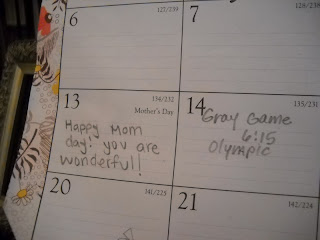 6
127/239
7
128/238
13
134/232
Mother's Day
Happy Mom
day! you are
wonderful!
14
135/231
Gray Game
6:15
Olympic
20
141/225
21
142/224